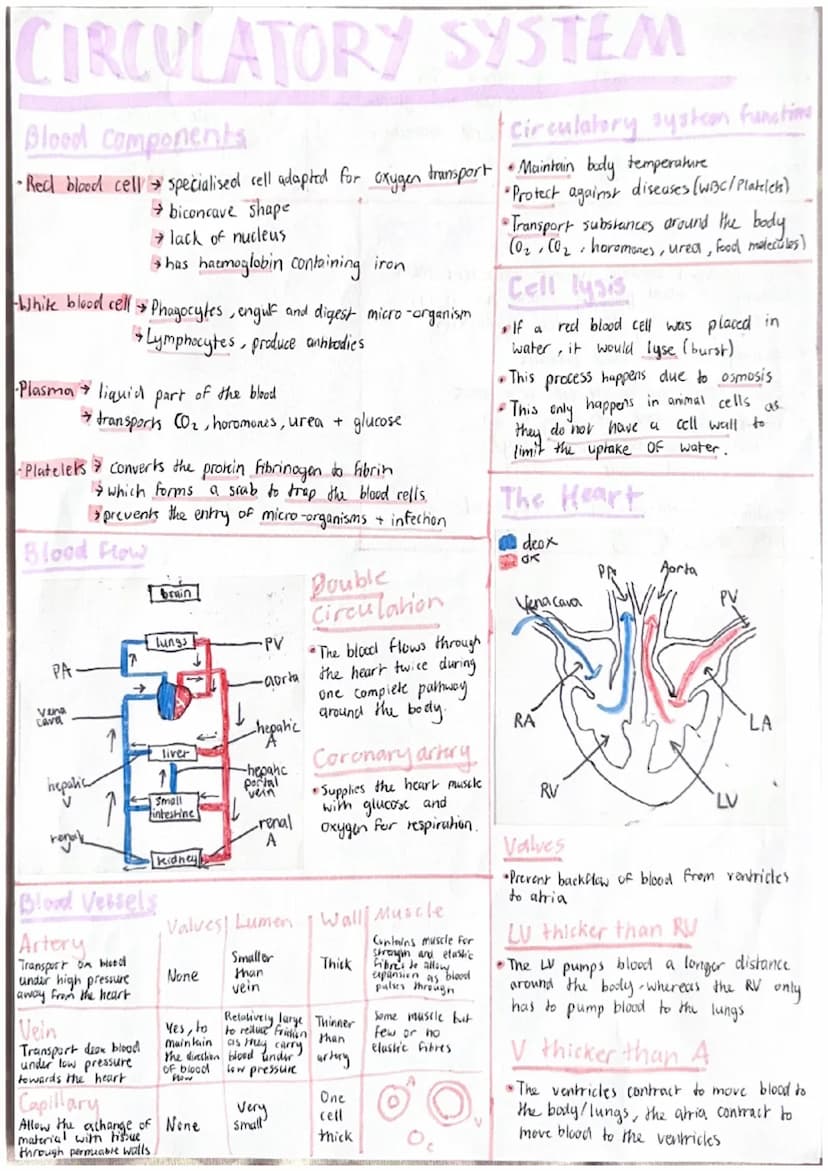 CIRCULATORY SYSTEM
Blood components
• Red blood cell → specialised cell adapted for oxygen transport
→ biconcave shape
→ lack of nucleus
→ has haemoglobin containing iron
• White blood cell → Phagocytes, engulf and digest micro-organism
→ Lymphocytes, produce antibodies
• Plasma → liquid part of the blood
→ transports CO2, horomones, urea + glucose
• Platelets → converts the protein fibrinogen to fibrin
→ which forms a scab to trap the blood cells
→ prevents the entry of micro-organisms + infection
Circulatory system functions
• Maintain body temperature
• Protect against diseases (WBC/Platelets)
• Transport substances around the body
(O2, CO2, horomones, urea, food molecules)
Cell lysis
• If a red blood cell was placed in
water, it would lyse (burst)
• This process happens due to osmosis
• This only happens in animal cells as
they do not have a cell wall to
limit the uptake of water.
Blood Flow
brain
lungs
PV
PA
aorta
vena
cava
hepatic
A
liver
hepatic
V
hepatic
portal
vein
small
intestine
renal
V
renal
A
kidney
Double
Circulation
• The blood flows through
the heart twice during
one complete pathway
around the body.
Coronary artery
• Supplies the heart muscle
with glucose and
oxygen for respiration.
The Heart
deox
ox
PA
Aorta
Vena cava
PV
RA
LA
RV
LV
Valves
• Prevent backflow of blood from ventricles
to atria
LV thicker than RV
• The LV pumps blood a longer distance
around the body - whereas the RV only
has to pump blood to the lungs
V thicker than A
• The ventricles contract to move blood to
the body/lungs, the atria contract to
move blood to the ventricles
Blood Vessels
Valves
Lumen
Wall
Muscle
Artery
Transport ox blood
under high pressure
away from the heart
None
Smaller
than
vein
Thick
Contains muscle for
strength and elastic
fibres to allow
expansion as blood
pulses through
Vein
Transport deox blood
under low pressure
towards the heart
Yes, to
maintain
the direction
of blood
flow
Relatively large
to reduce friction
as they carry
blood under
low pressure
Thinner
than
artery
Some muscle but
few or no
elastic fibres
Capillary
Allow the exchange of
material with tissue
through permeable walls
None
Very
small
One
cell
thick
A
V
C